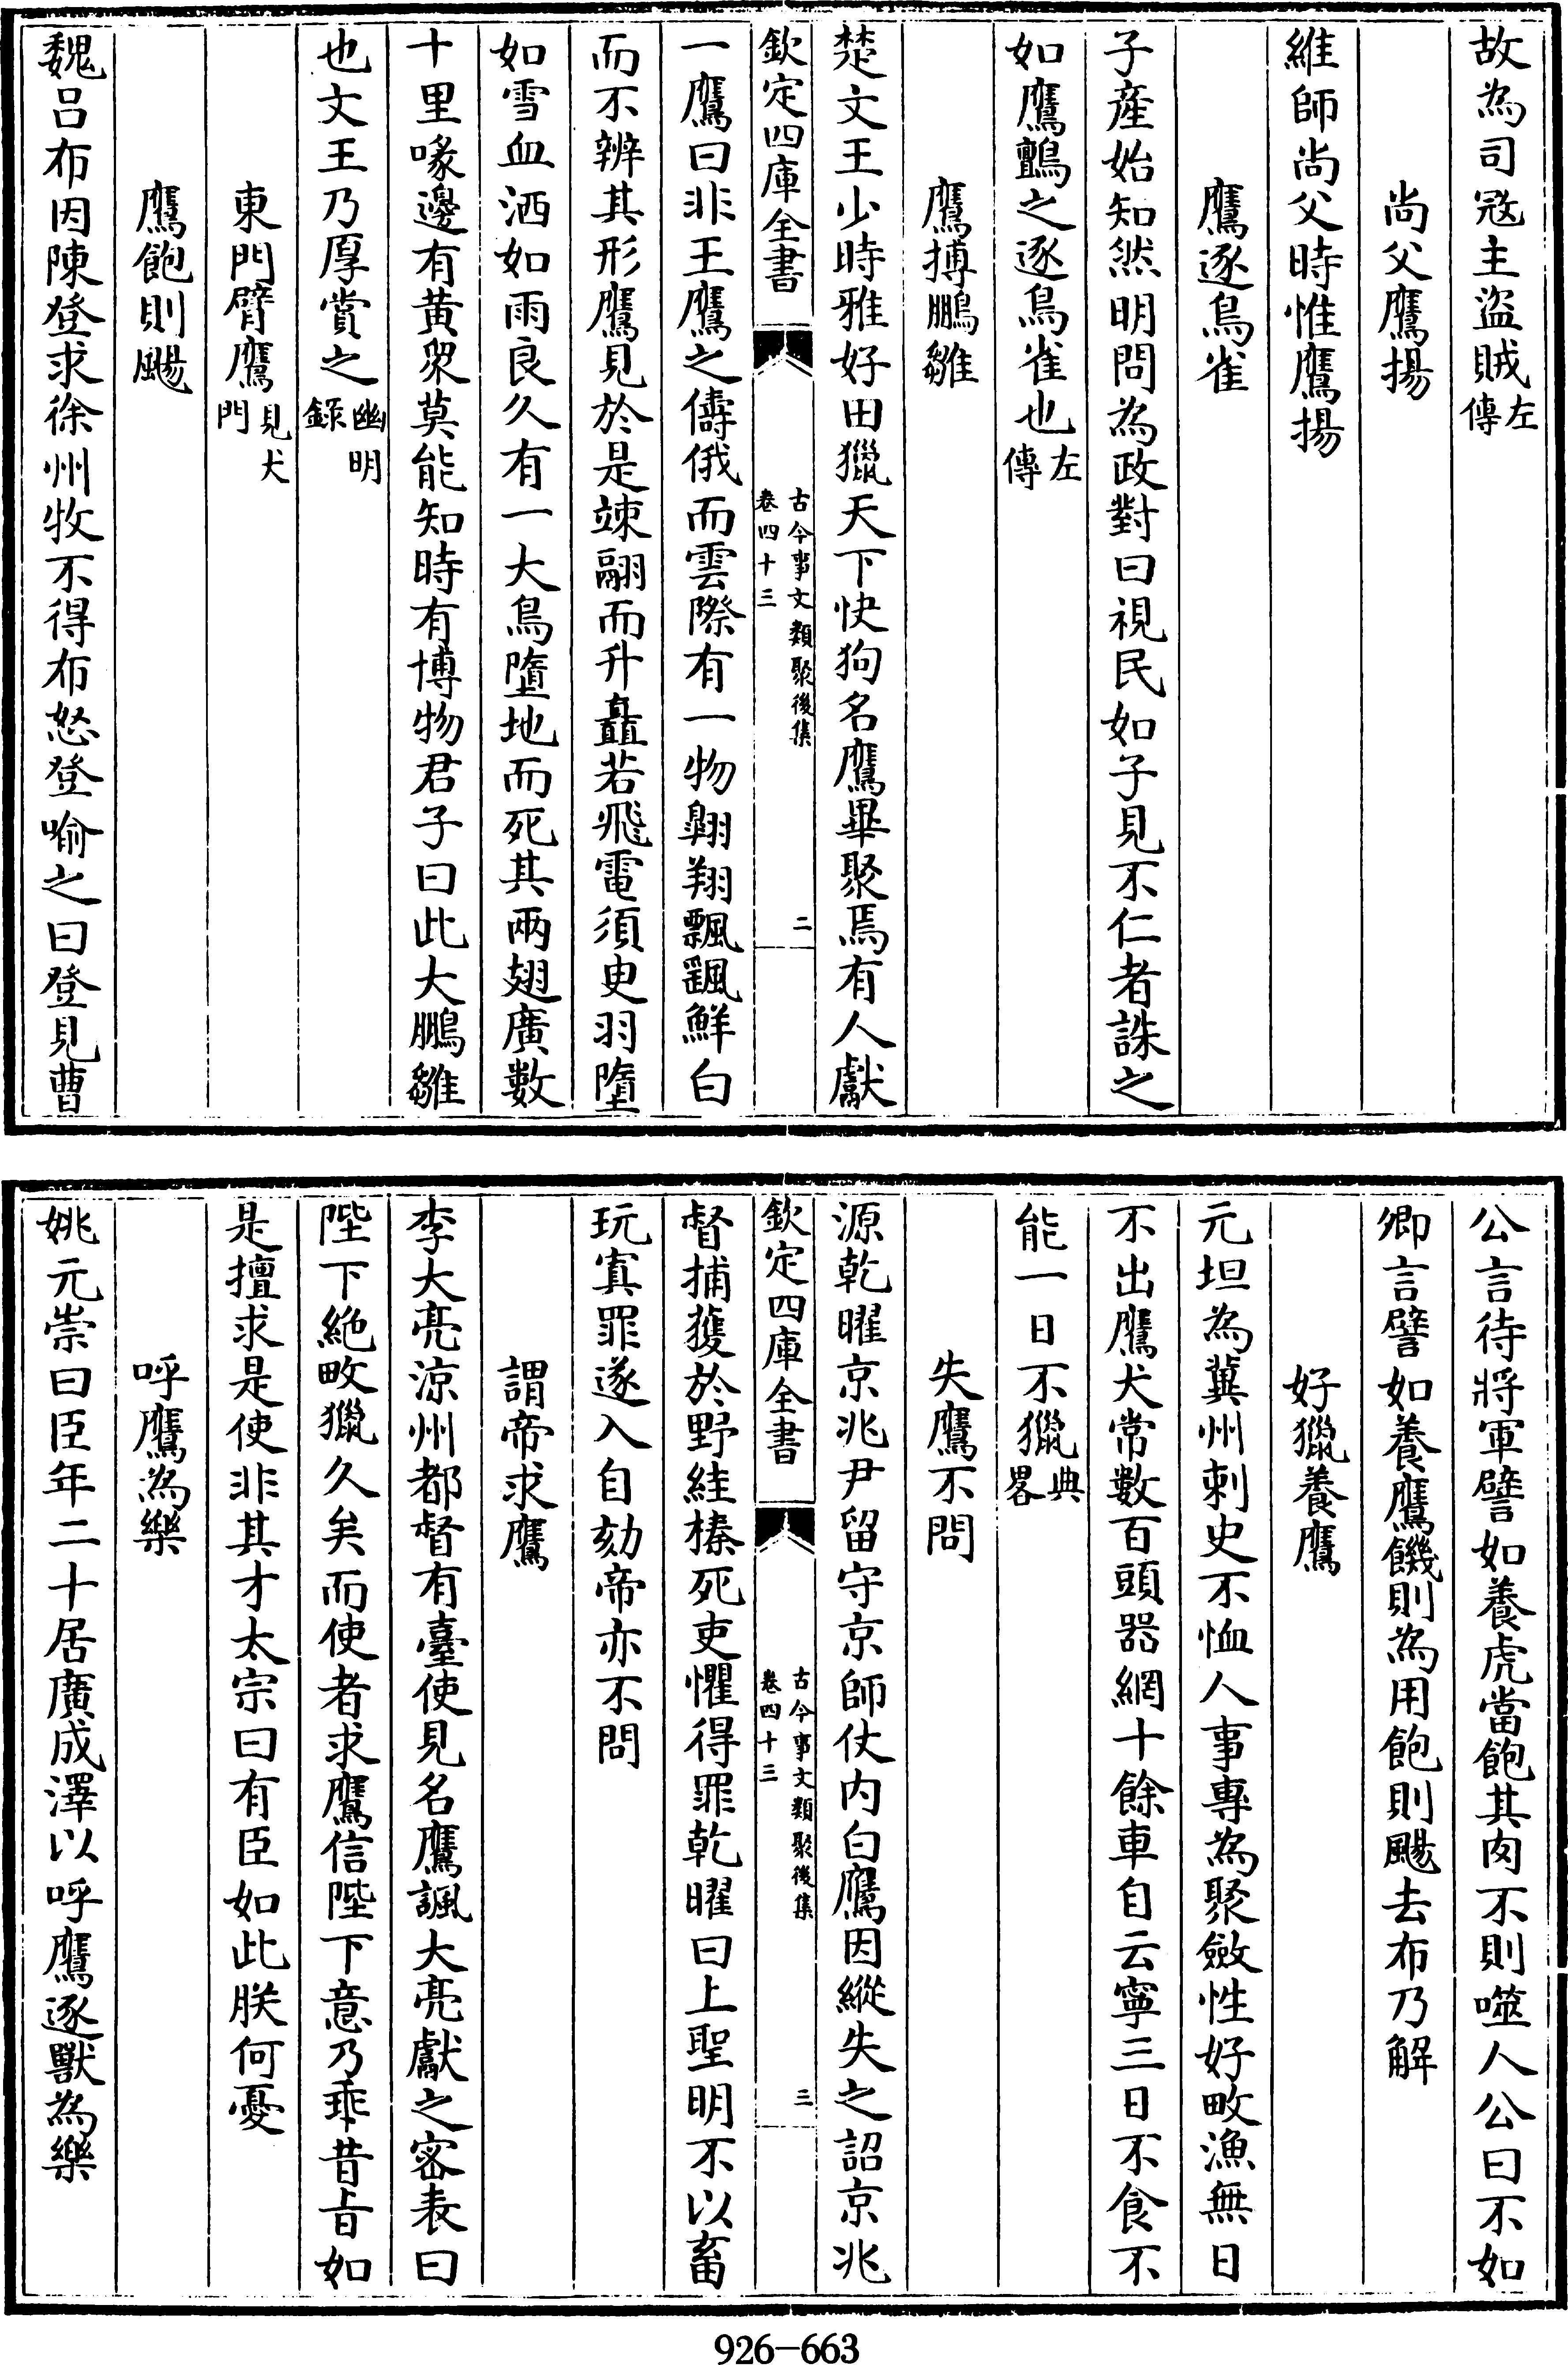 故為司冦主盜賊左傳
尚父鷹揚
維師尚父時惟鷹揚
鷹逐鳥雀
子產始知然明問為政對曰視民如子見不仁者誅之
如鷹鸇之逐鳥雀也左傳
鷹搏鵬雛
楚文王少時雅好田獵天下快狗名鷹畢聚焉有人獻
欽定四庫全書
古今事文類聚後集
卷四十三
二
一鷹曰非王鷹之儔俄而雲際有一物翺翔飄颻鮮白
而不辨其形鷹見於是竦翮而升矗若飛電須臾羽墮
如雪血洒如雨良久有一大鳥墮地而死其兩翅廣數
十里喙邊有黃衆莫能知時有博物君子曰此大鵬雛
也文王乃厚賞之幽明錄
東門臂鷹見犬門
鷹飽則颺
魏呂布因陳登求徐州牧不得布怒登喻之曰登見曹
公言待將軍譬如養虎當飽其肉不則噬人公曰不如
卿言譬如養鷹饑則為用飽則颺去布乃解
好獵養鷹
元坦為冀州刺史不恤人事專為聚斂性好畋漁無日
不出鷹犬常數百頭器網十餘車自云寧三日不食不
能一日不獵典畧
失鷹不問
源乾曜京兆尹留守京師仗內白鷹因縱失之詔京兆
欽定四庫全書
古今事文類聚後集
卷四十三
三
督捕獲於野絓榛死吏懼得罪乾曜曰上聖明不以畜
玩寘罪遂入自劾帝亦不問
謂帝求鷹
李大亮涼州都督有臺使見名鷹諷大亮獻之密表曰
陛下絶畋獵久矣而使者求鷹信陛下意乃乖昔旨如
是擅求是使非其才太宗曰有臣如此朕何憂
呼鷹為樂
姚元崇曰臣年二十居廣成澤以呼鷹逐獸為樂
926-663